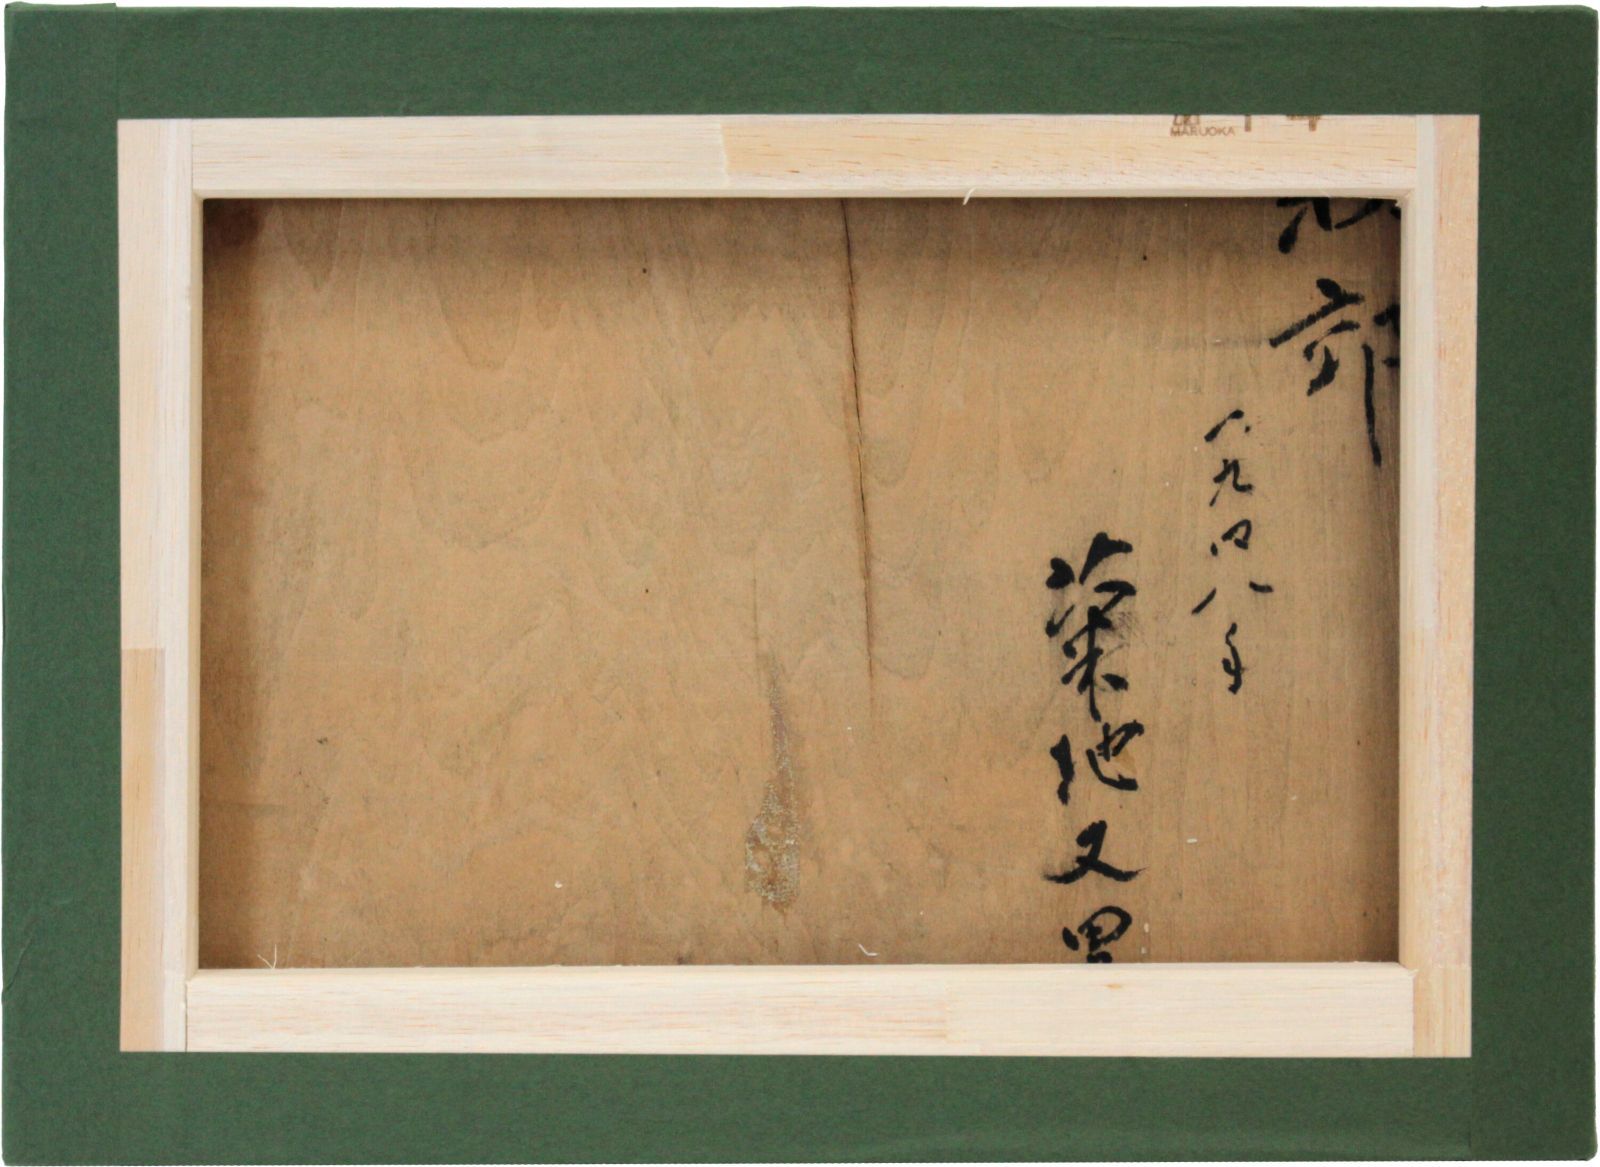 MARUOKA
郊
一九四八年
菊地又男